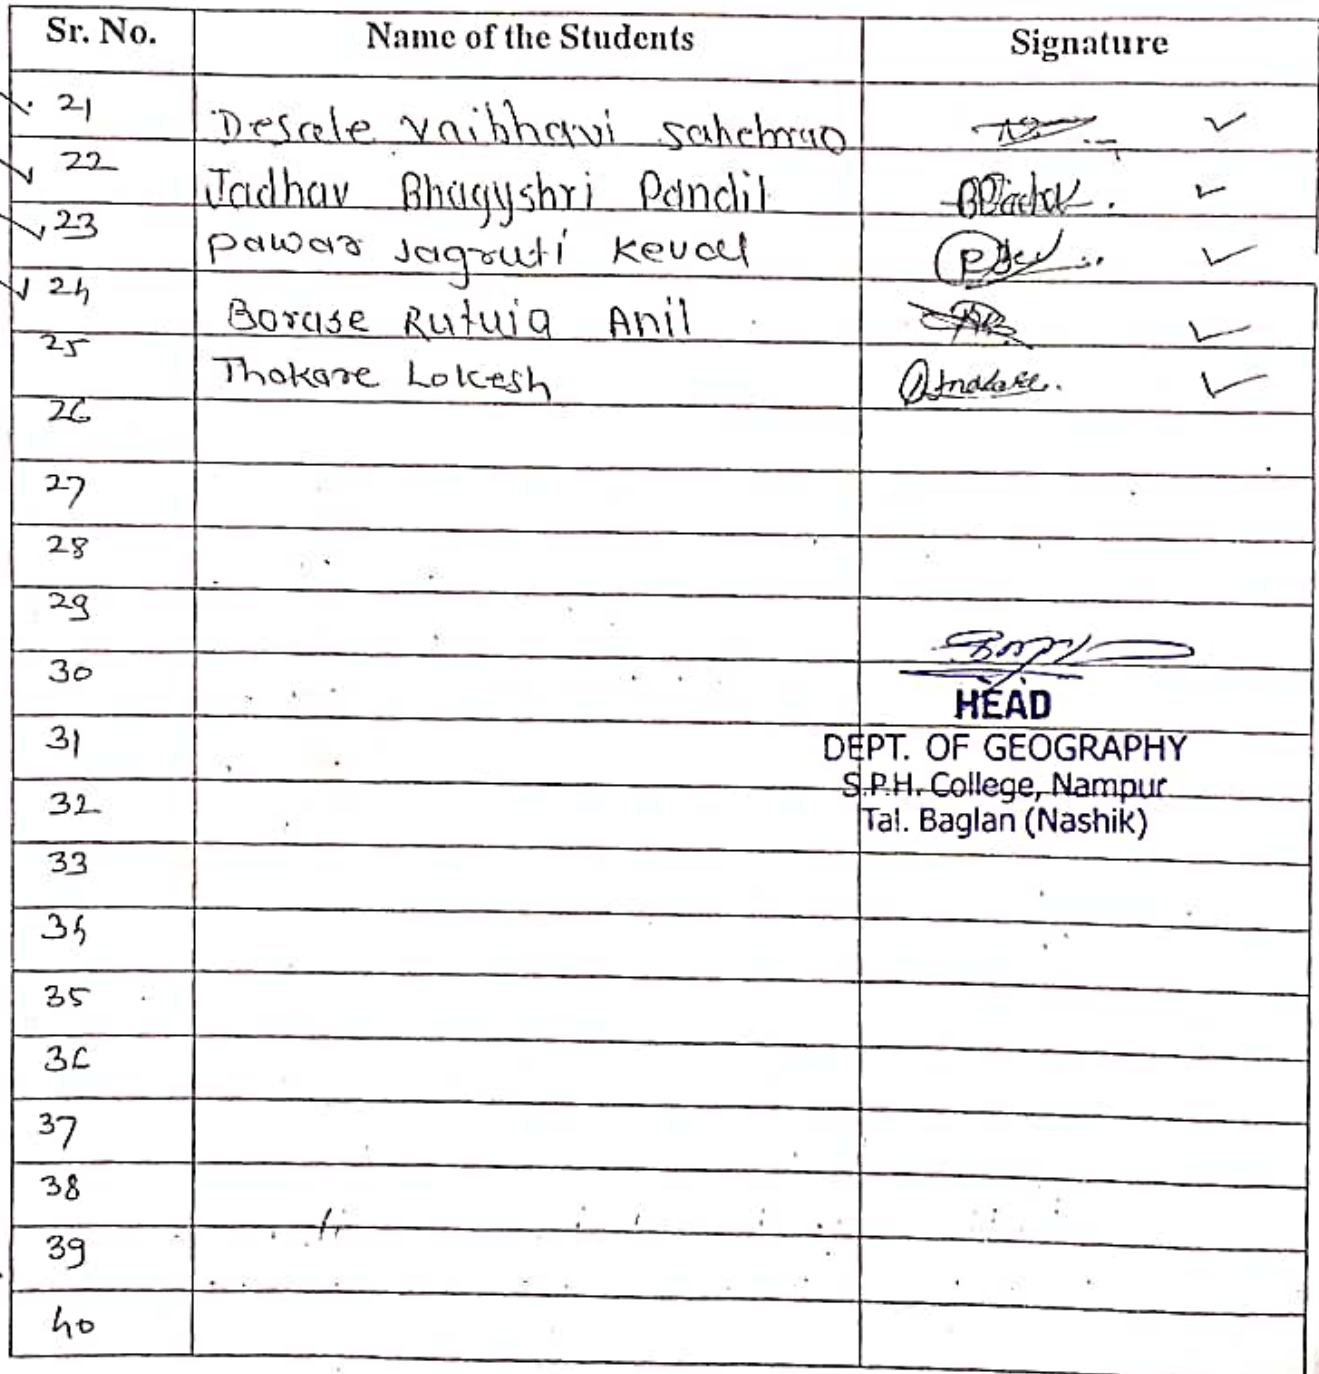 Sr. No. Name of the Students Signature
21 Desale Vaibhavi sahebrao
22 Jadhav Bhagyshri Pandit
23 pawar Jagruti Keval
24 Borase Rutuja Anil
25 Thakare Lokesh
26
27
28
29
30
HEAD
31
DEPT. OF GEOGRAPHY
S.P.H. College, Nampur
32
Tal. Baglan (Nashik)
33
34
35
36
37
38
39
40